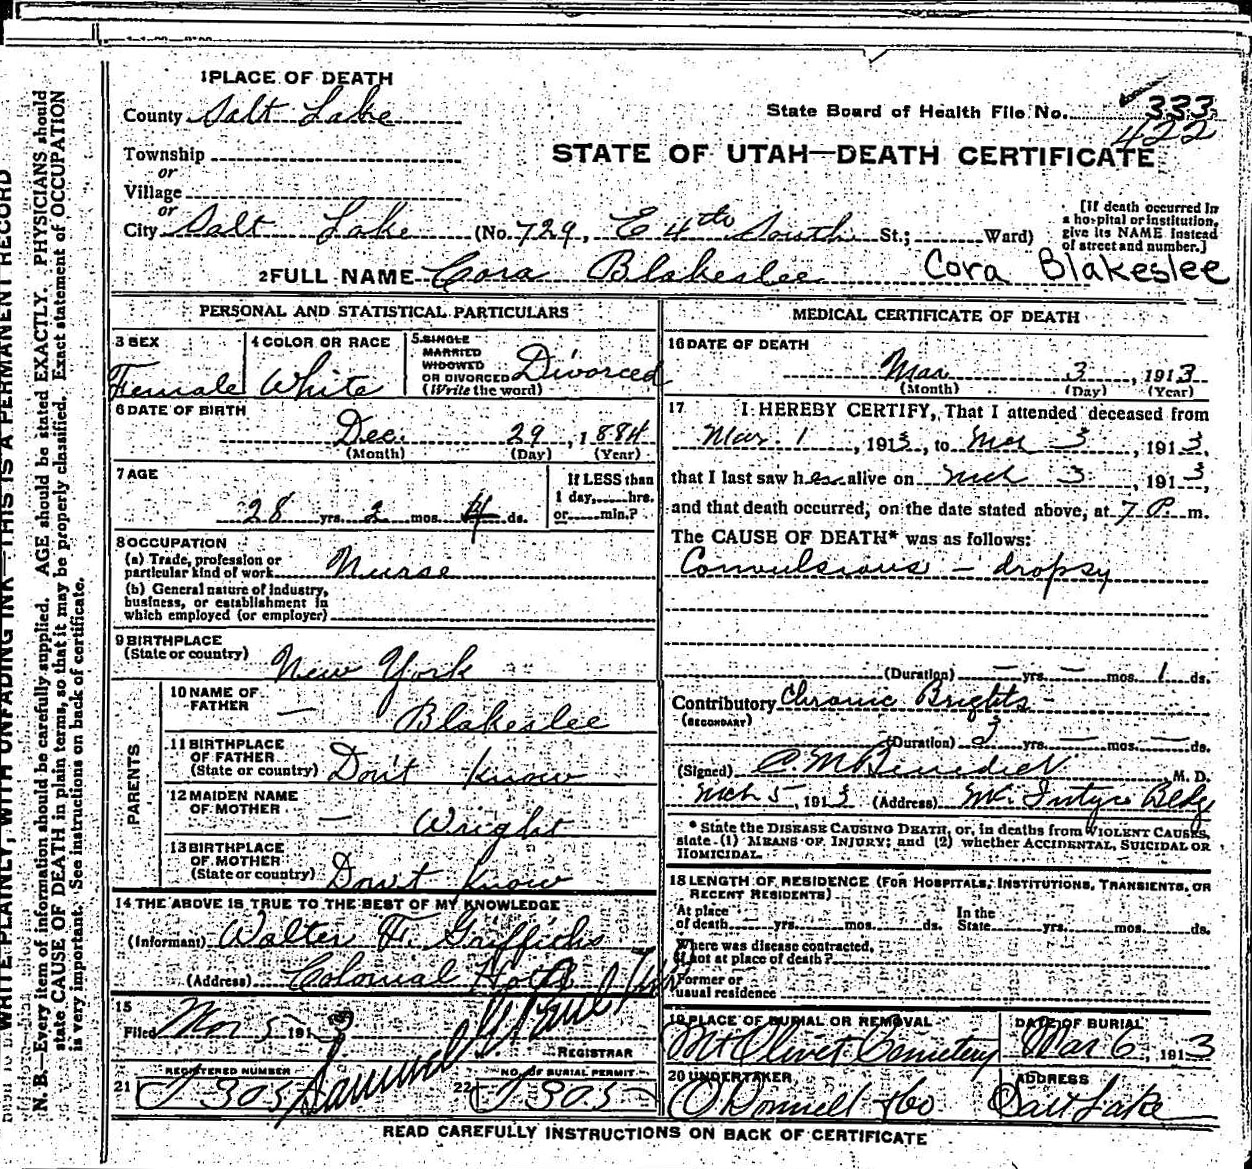 1 PLACE OF DEATH
County Salt Lake
State Board of Health File No. 333
422
Township
or
STATE OF UTAH—DEATH CERTIFICATE
Village
or
City Salt Lake (No. 729, E 4th South St.; Ward)
[If death occurred in
a hospital or institution,
give its NAME instead
of street and number.]
2 FULL NAME Cora Blakeslee Cora Blakeslee
PERSONAL AND STATISTICAL PARTICULARS
3 SEX
Female
4 COLOR OR RACE
White
5 SINGLE
MARRIED
WIDOWED
OR DIVORCED Divorced
(Write the word)
6 DATE OF BIRTH
Dec. 29, 1884
(Month) (Day) (Year)
7 AGE
28 yrs. 2 mos. 4 ds.
If LESS than
1 day, hrs.
or min.?
8 OCCUPATION
(a) Trade, profession or
particular kind of work Nurse
(b) General nature of industry,
business, or establishment in
which employed (or employer)
9 BIRTHPLACE
(State or country) New York
PARENTS
10 NAME OF
FATHER — Blakeslee
11 BIRTHPLACE
OF FATHER
(State or country) Don't know
12 MAIDEN NAME
OF MOTHER — Wright
13 BIRTHPLACE
OF MOTHER
(State or country) Don't know
14 THE ABOVE IS TRUE TO THE BEST OF MY KNOWLEDGE
(Informant) Walter F. Griffiths
(Address) Colonial Hotel
15
Filed Mar 5 1913
REGISTRAR
REGISTERED NUMBER
21 J 305
NO. OF BURIAL PERMIT
22 J 305
MEDICAL CERTIFICATE OF DEATH
16 DATE OF DEATH
Mar 3, 1913
(Month) (Day) (Year)
17 I HEREBY CERTIFY, That I attended deceased from
Mar. 1, 1913, to Mar 3, 1913,
that I last saw her alive on Mch 3, 1913,
and that death occurred, on the date stated above, at 7 P. m.
The CAUSE OF DEATH* was as follows:
Convulsions — dropsy
(Duration) — yrs. — mos. 1 ds.
Contributory Chronic Brights
(SECONDARY)
(Duration) yrs. — mos. — ds.
(Signed) C. M. Benedict, M. D.
Mch 5, 1913 (Address) Mc. Intyre Bldg
* State the DISEASE CAUSING DEATH, or, in deaths from VIOLENT CAUSES,
state (1) MEANS OF INJURY; and (2) whether ACCIDENTAL, SUICIDAL OR
HOMICIDAL.
18 LENGTH OF RESIDENCE (FOR HOSPITALS, INSTITUTIONS, TRANSIENTS, OR
RECENT RESIDENTS)
At place
of death yrs. mos. ds.
In the
State yrs. mos. ds.
Where was disease contracted,
if not at place of death?
Former or
usual residence
19 PLACE OF BURIAL OR REMOVAL
Mt Olivet Cemetery
DATE OF BURIAL
Mar 6, 1913
20 UNDERTAKER
O'Donnell & Co
ADDRESS
Salt Lake
READ CAREFULLY INSTRUCTIONS ON BACK OF CERTIFICATE
WRITE PLAINLY, WITH UNFADING INK—THIS IS A PERMANENT RECORD
N. B.—Every item of information should be carefully supplied. AGE should be stated EXACTLY. PHYSICIANS should
state CAUSE OF DEATH in plain terms, so that it may be properly classified. Exact statement of OCCUPATION
is very important. See instructions on back of certificate.